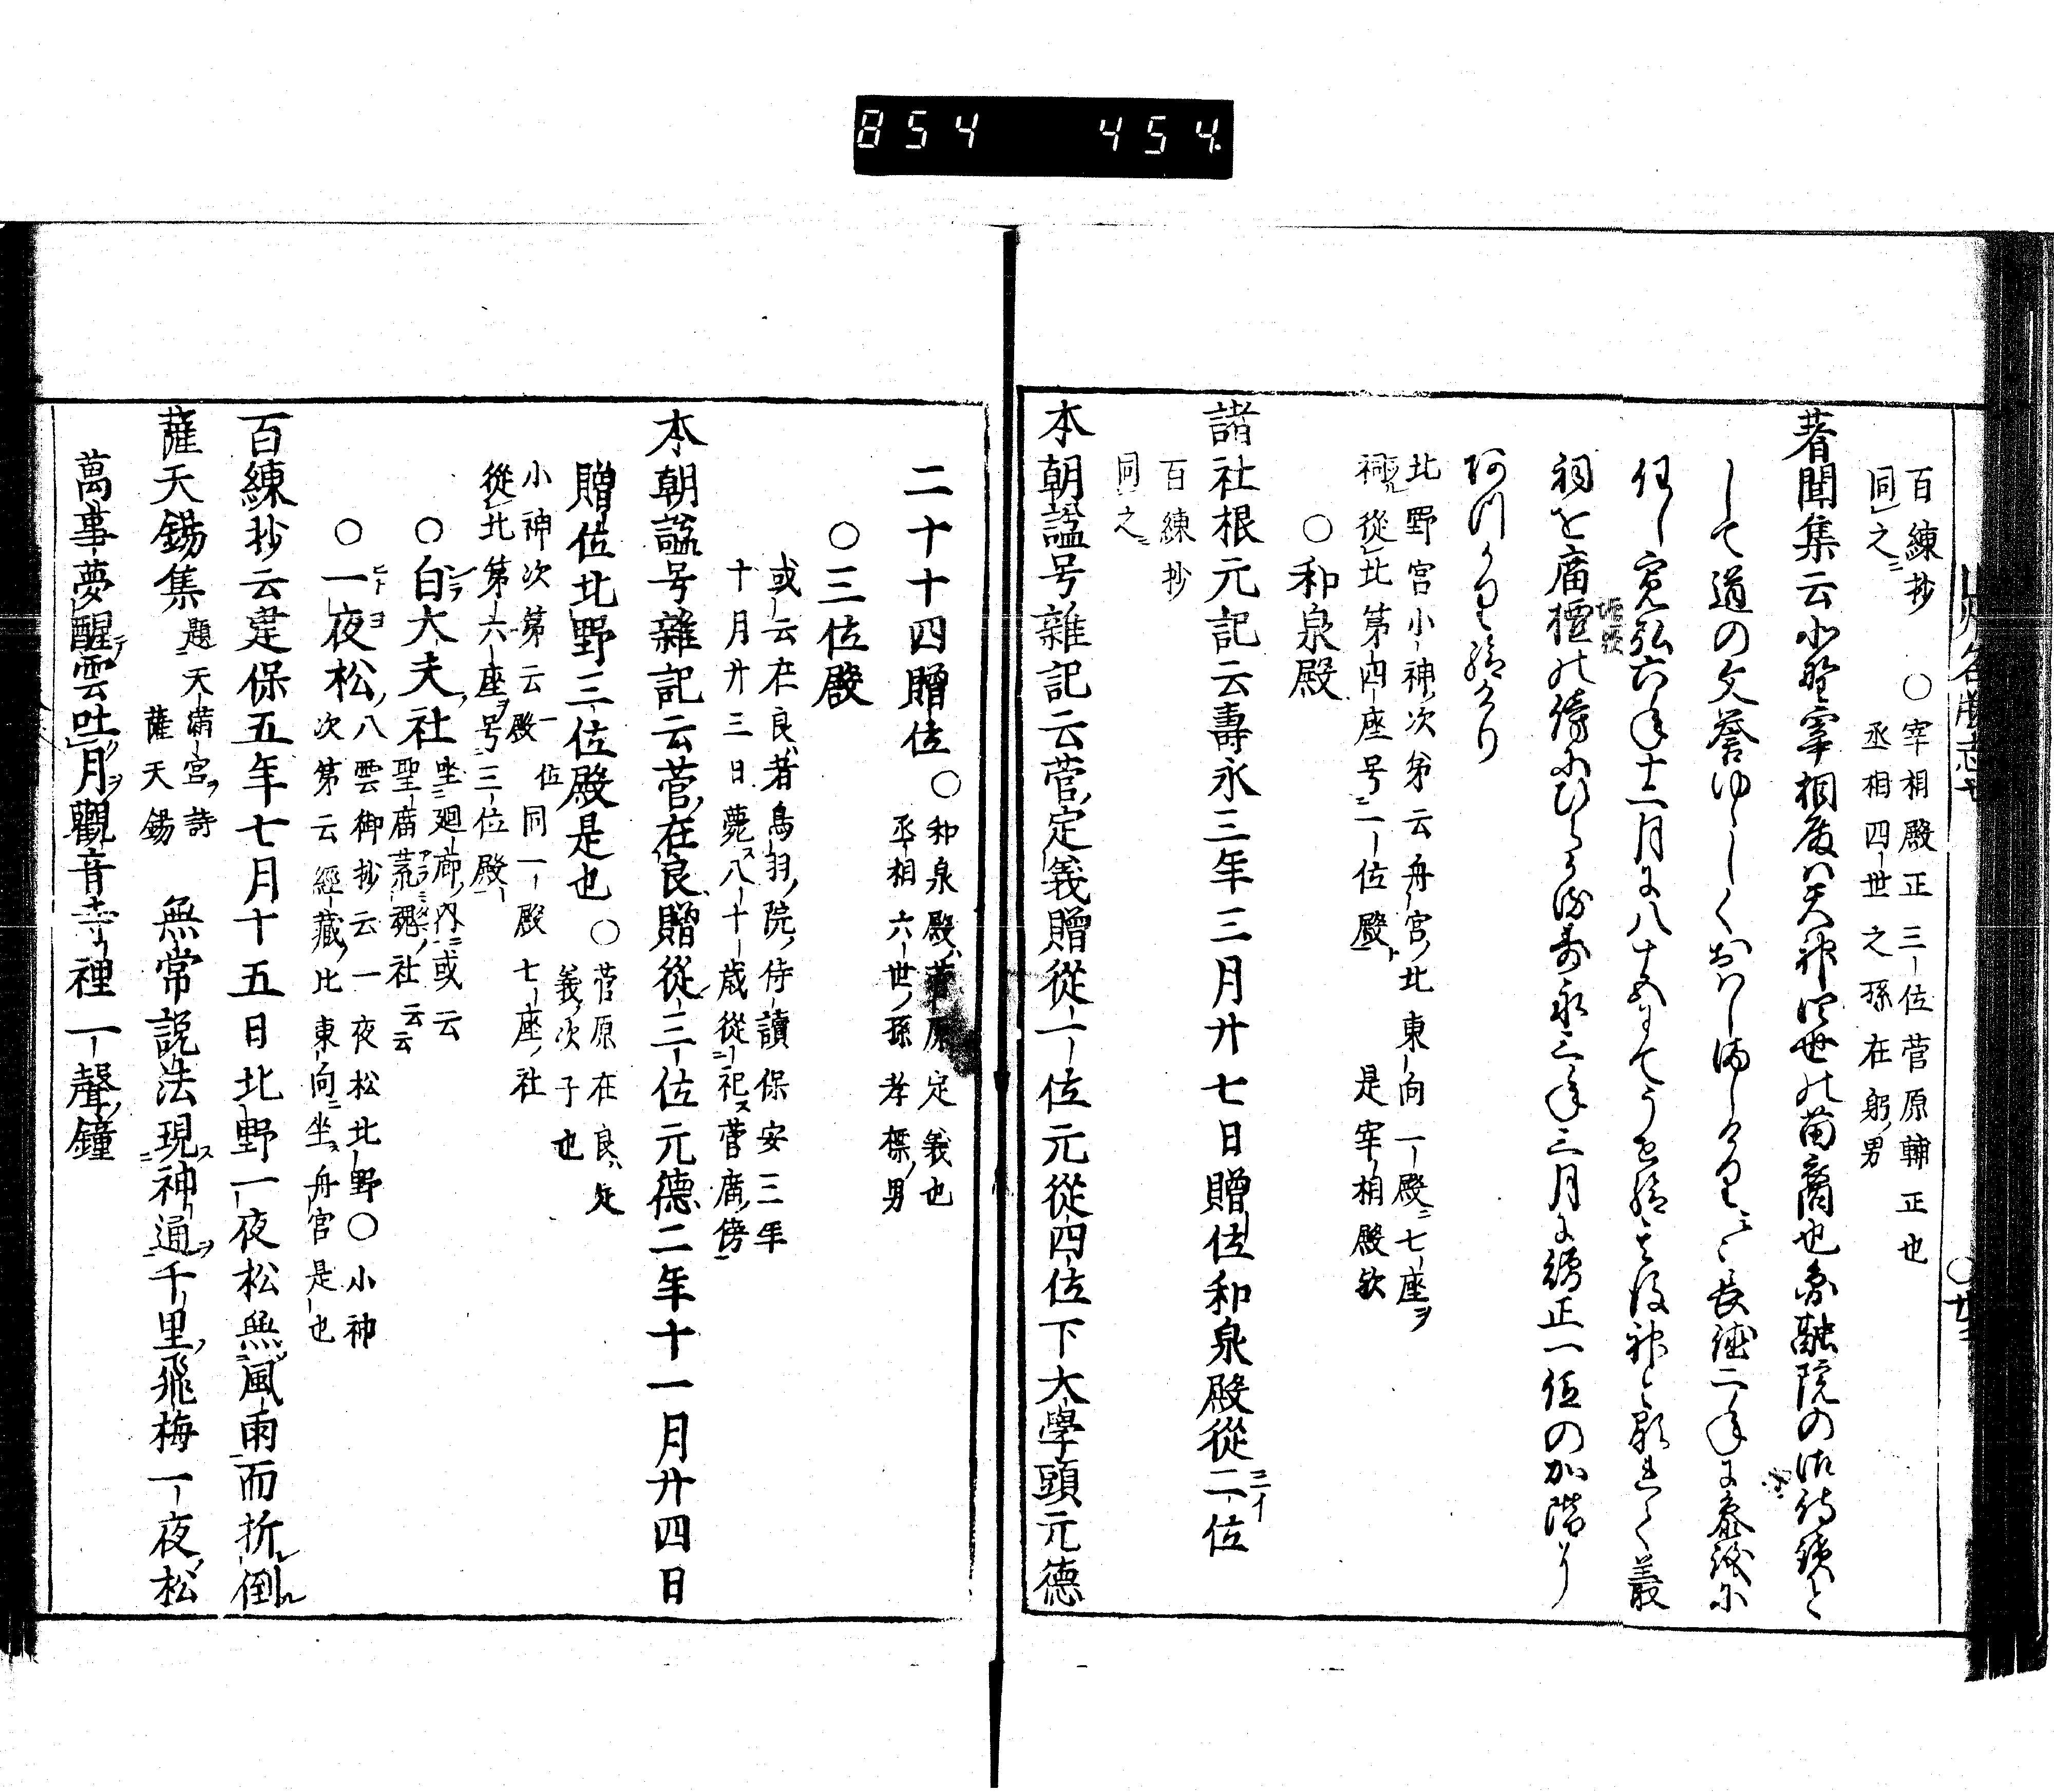 854 454
百練抄
同之
○宰相殿正三位菅原輔正也
丞相四世之孫在躬男
著聞集云北野宰相殿ハ天神四世の苗裔也円融院の御侍読と
して道の文誉ゆゝしくおはしましけり長徳二年に参議に
任し寛弘六年十二月に八十五にてうせ給その後神と顕れて叢
祠を廟壇の傍にひらかる寿永三年三月に贈正一位の加階
ありけり
北野宮小神次第云舟宮北東向一殿七座ヲ
祠從北第四座号二一位殿是宰相殿歟
○和泉殿
諸社根元記云壽永三年三月廿七日贈位和泉殿從二位
百練抄
同之
本朝謚号雜記云菅定義贈從一位元從四位下大學頭元德
二十十四贈位
○和泉殿菅原定義也
丞相六世孫孝標男
○三位殿
或云在良者鳥羽院侍讀保安三年
十月廿三日薨八十歳從祀菅廟傍
本朝謚号雜記云菅在良贈從三位元德二年十一月廿四日
贈位北野三位殿是也
○菅原在良定
義次子也
小神次第云一殿位同一殿七座社
從北第六座号三位殿
○白大夫社
坐廻廊内或云
聖廟荒魂社云云
○一夜松
八雲御抄云一夜松北野○小神
次第云經藏北東向坐舟宮是也
百練抄云建保五年七月十五日北野一夜松無風雨而折倒
薩天錫集
題天満宮詩
薩天錫
無常説法現神通千里飛梅一夜松
萬事夢醒雲吐月觀音寺裡一聲鐘